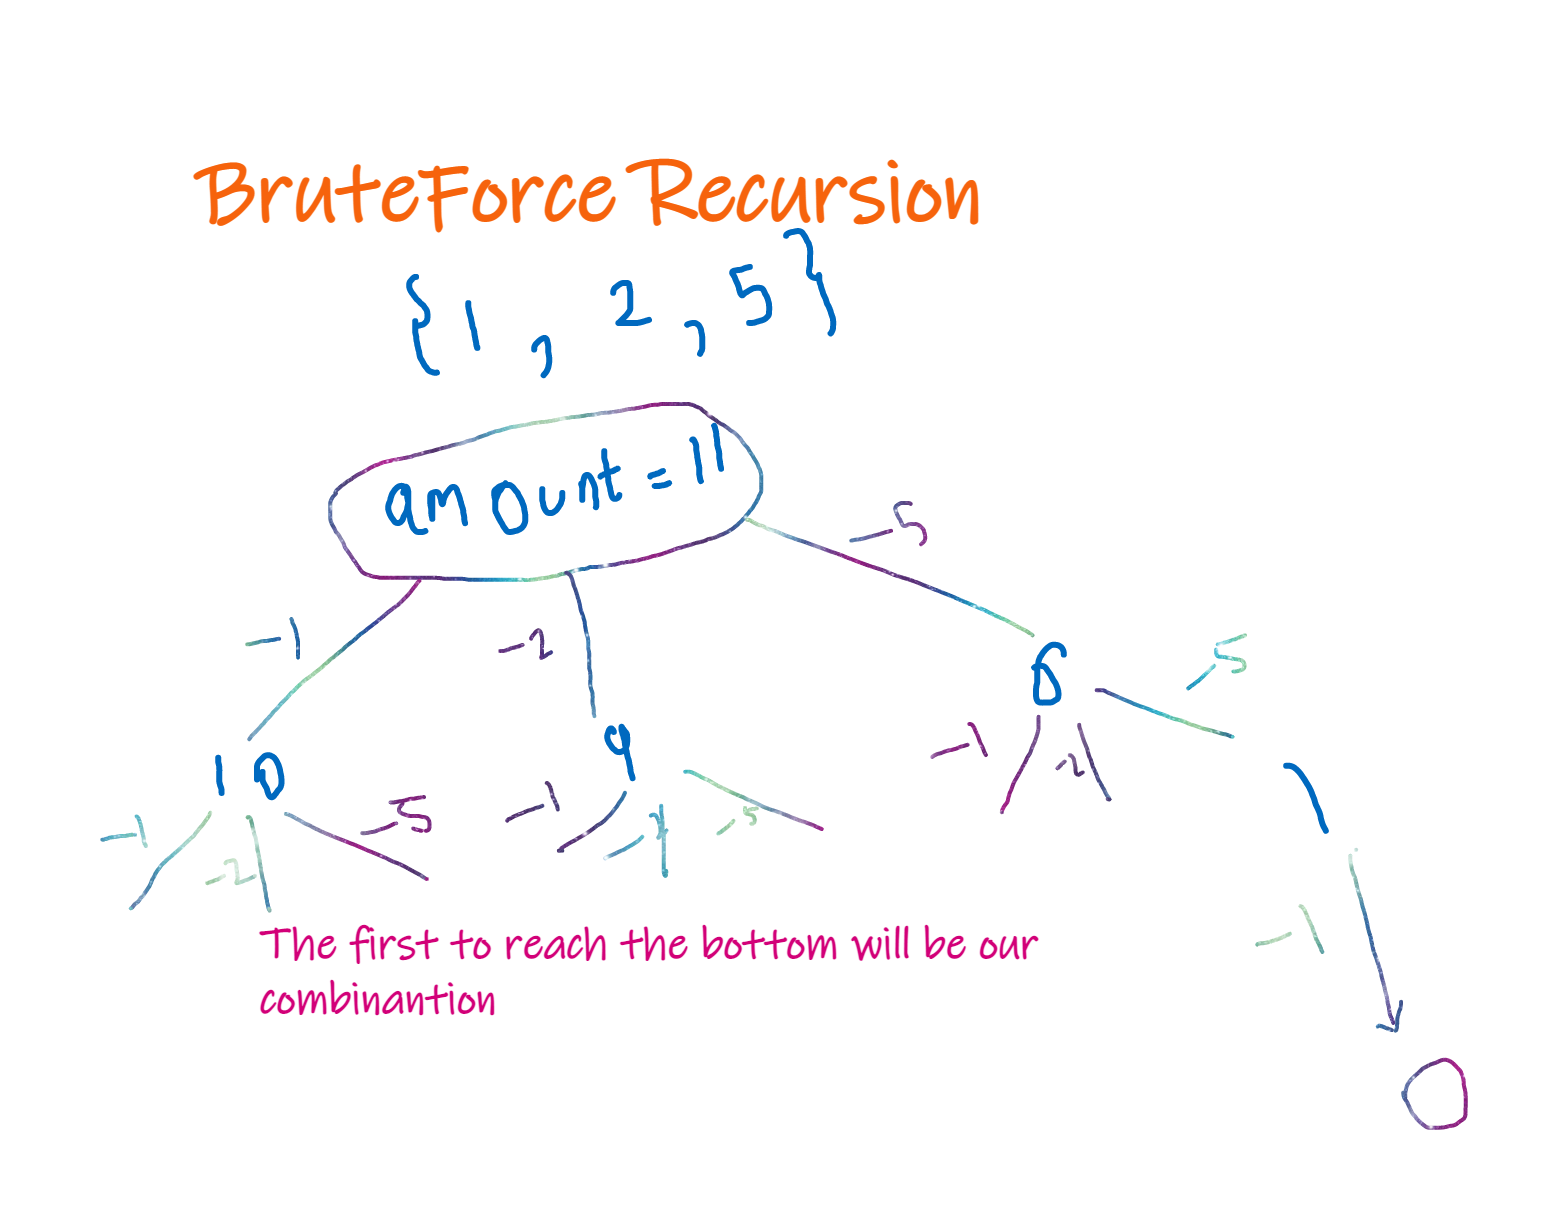 BruteForce Recursion
{1, 2, 5}
amount = 11
-5
-1
-2
-5
6
-1
-2
10
9
-1
-2
-5
-1
-5
1
The first to reach the bottom will be our
combinantion
-1
0